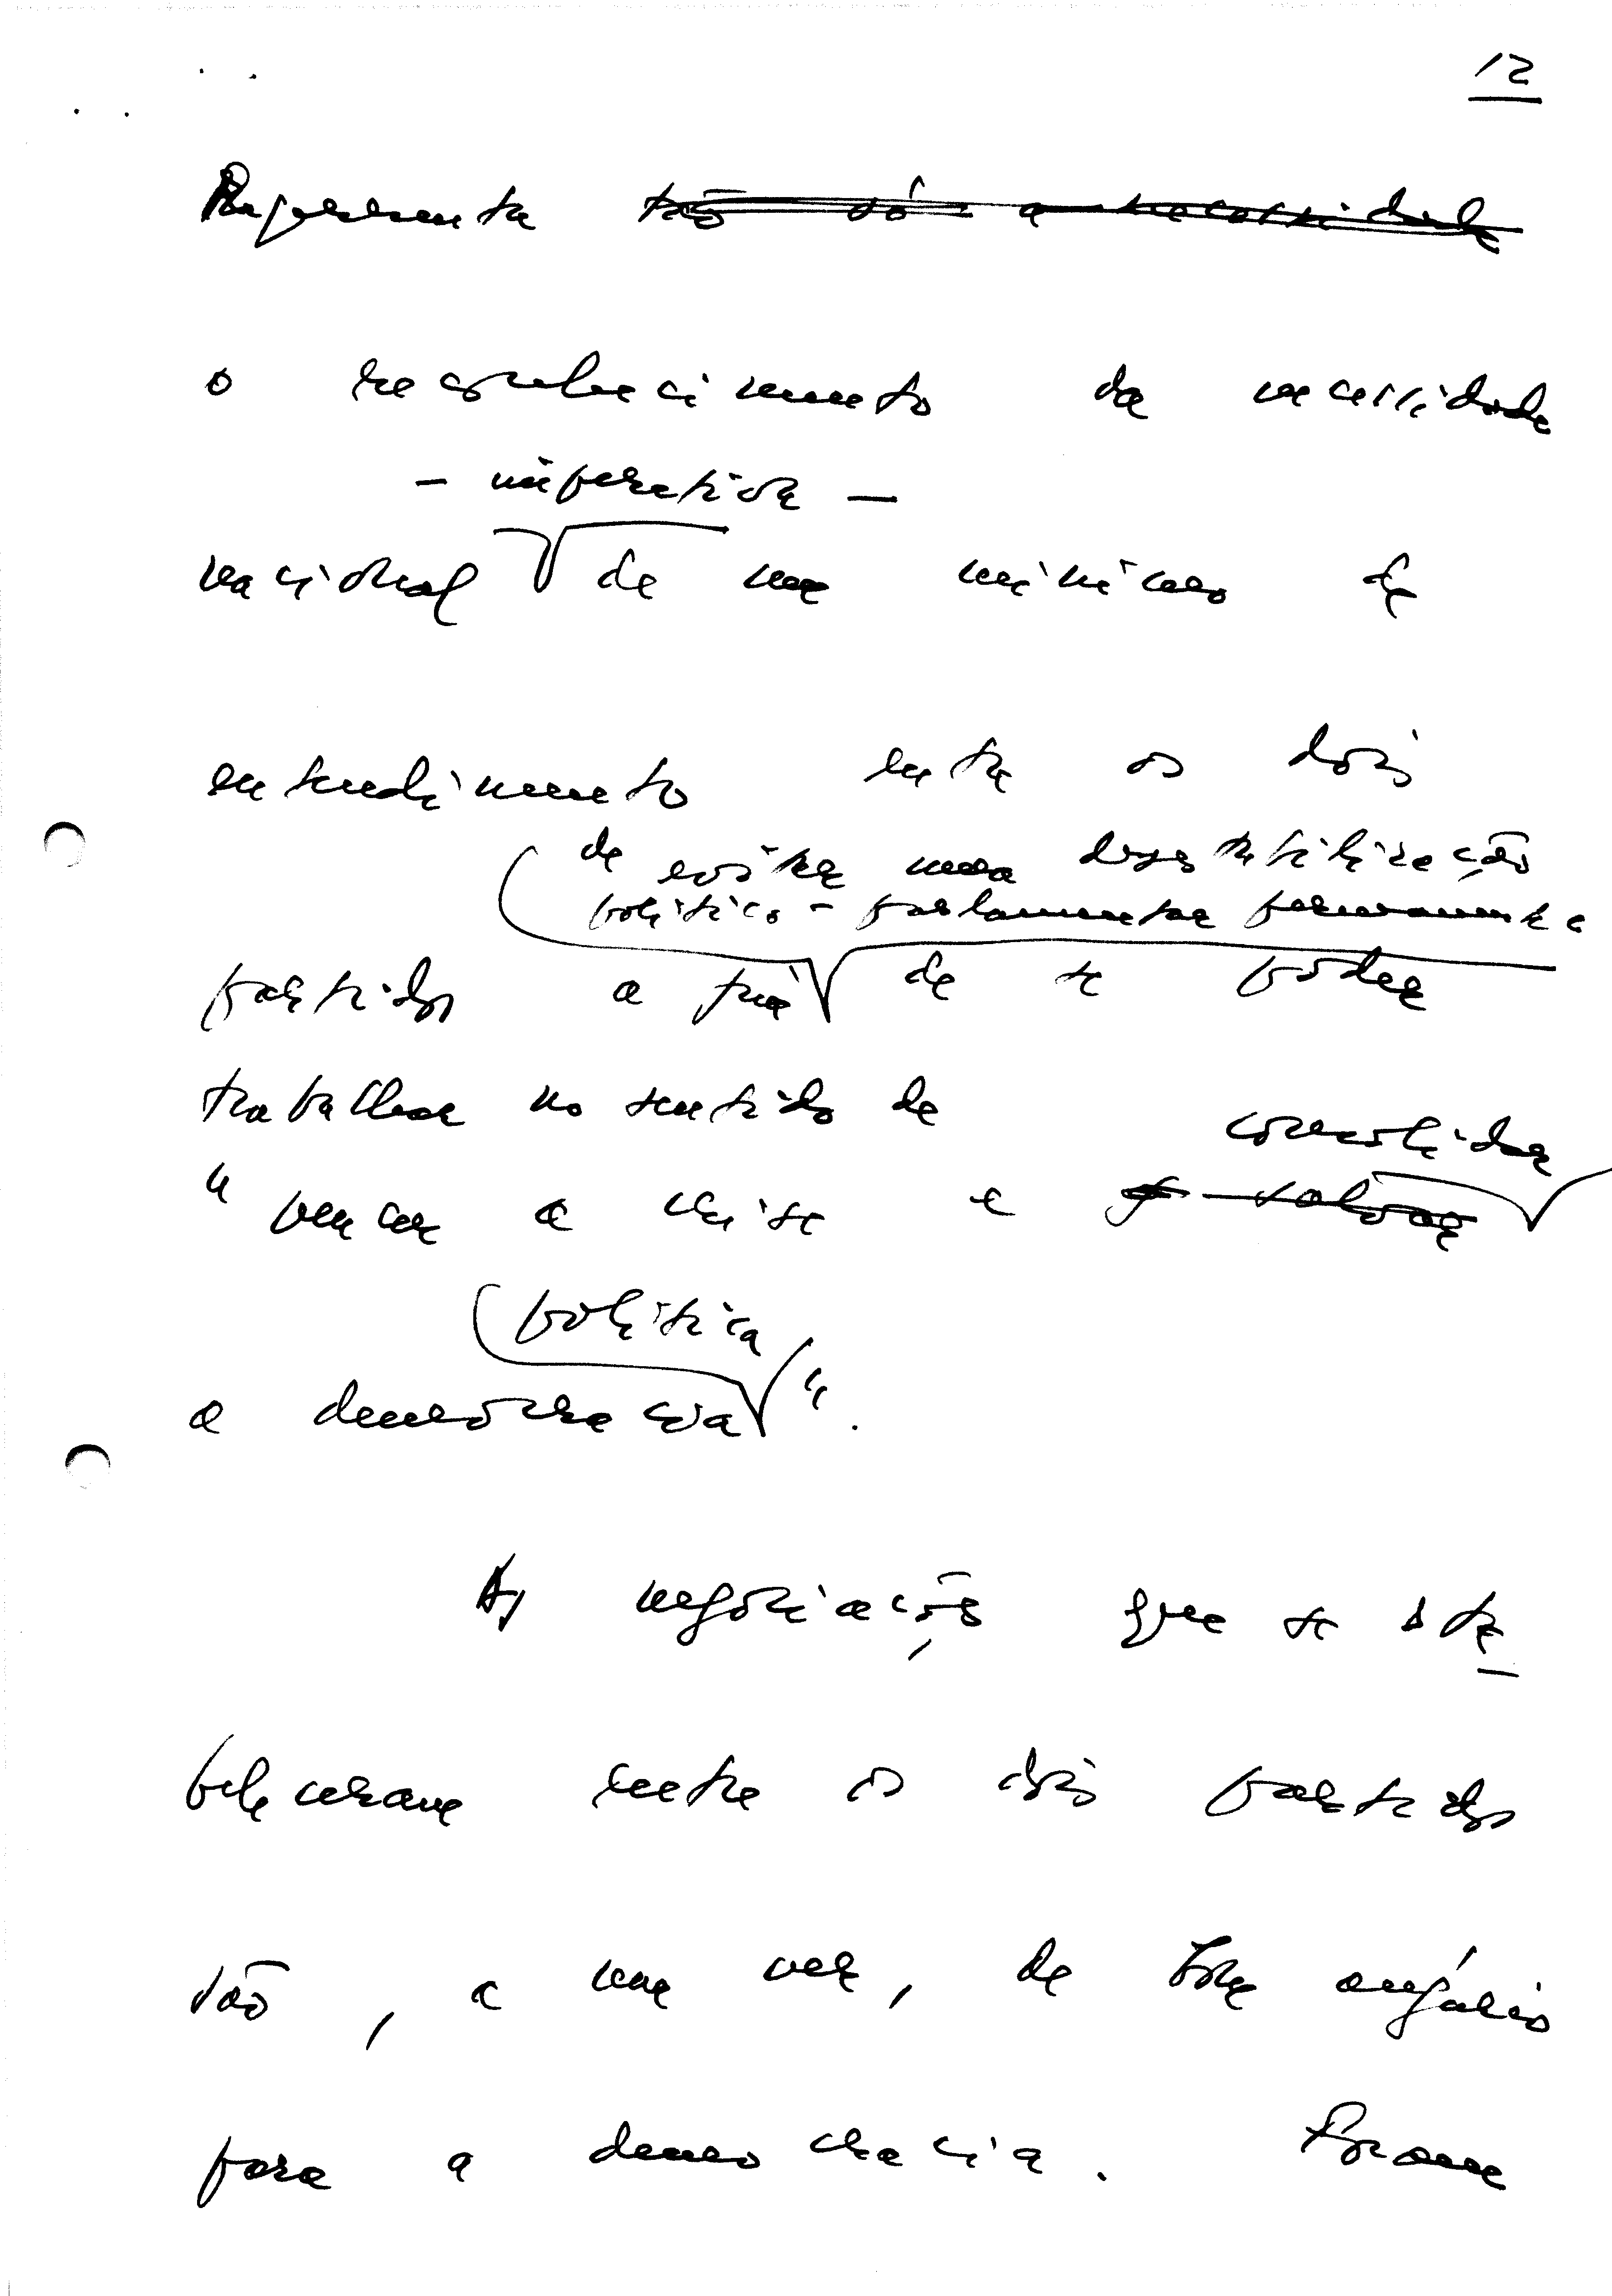 12
Representa tão só a necessidade
o reconhecimento da necessidade
- imperativa -
nacional de um mínimo de
entendimento entre os dois
de evitar uma desestabilização
político-parlamentar permanente e
partidos a fim de se poder
trabalhar no sentido de
consolidar
"vencer a crise e salvar
política
a democracia".
As negociações que se esta
beleceram entre os dois partidos
são, a meu ver, de bom augúrio
para a democracia. Foram